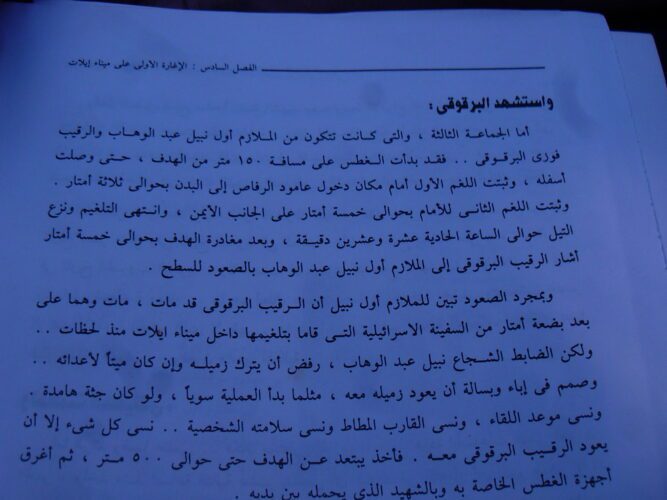 الفصل السادس : الإغارة الأولى على ميناء إيلات
واستشهد البرقوقى :
أما الجماعة الثالثة ، والتى كانت تتكون من الملازم أول نبيل عبد الوهاب والرقيب
فوزى البرقوقى .. فقد بدأت الغطس على مسافة ١٥٠ متر من الهدف ، حتى وصلت
أسفله ، وثبتت اللغم الأول أمام مكان دخول عامود الرفاص إلى البدن بحوالى ثلاثة أمتار .
وثبتت اللغم الثانى للأمام بحوالى خمسة أمتار على الجانب الأيمن ، وانتهى التلغيم ونزع
التيل حوالى الساعة الحادية عشرة وعشرين دقيقة ، وبعد مغادرة الهدف بحوالى خمسة أمتار
أشار الرقيب البرقوقى إلى الملازم أول نبيل عبد الوهاب بالصعود للسطح .
وبمجرد الصعود تبين للملازم أول نبيل أن الرقيب البرقوقى قد مات ، مات وهما على
بعد بضعة أمتار من السفينة الاسرائيلية التى قاما بتلغيمها داخل ميناء ايلات منذ لحظات ..
ولكن الضابط الشجاع نبيل عبد الوهاب ، رفض أن يترك زميله وإن كان ميتاً لأعدائه ..
وصمم فى إباء وبسالة أن يعود زميله معه ، مثلما بدأ العملية سوياً ، ولو كان جثة هامدة .
ونسى موعد اللقاء ، ونسى القارب المطاط ونسى سلامته الشخصية .. نسى كل شىء إلا أن
يعود الرقيب البرقوقى معه . فأخذ يبتعد عن الهدف حتى حوالى ٥٠٠ متر ، ثم أغرق
أجهزة الغطس الخاصة به وبالشهيد الذى يحمله بين يديه .